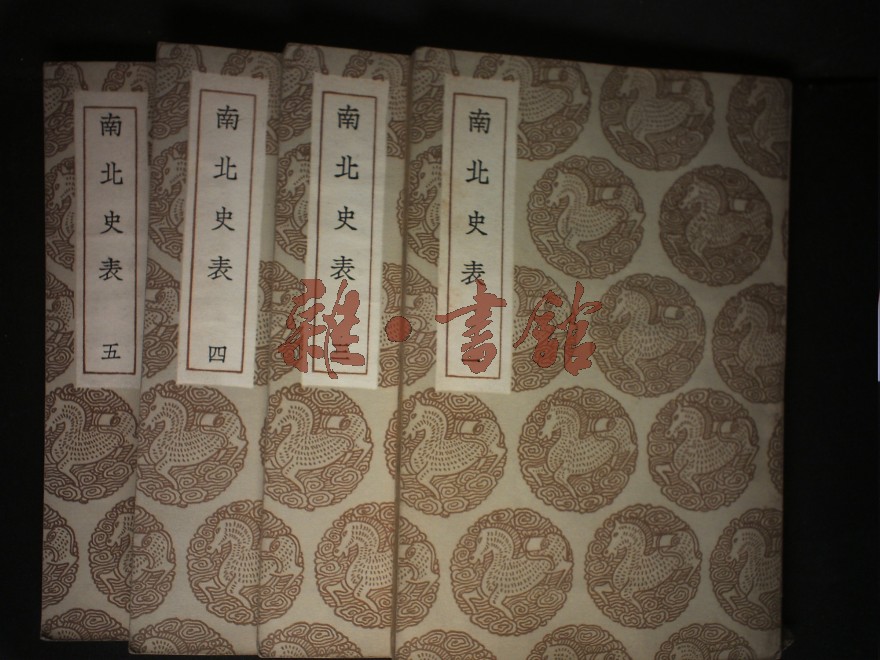 南北史表 一
南北史表 三
南北史表 四
南北史表 五
雜·書館